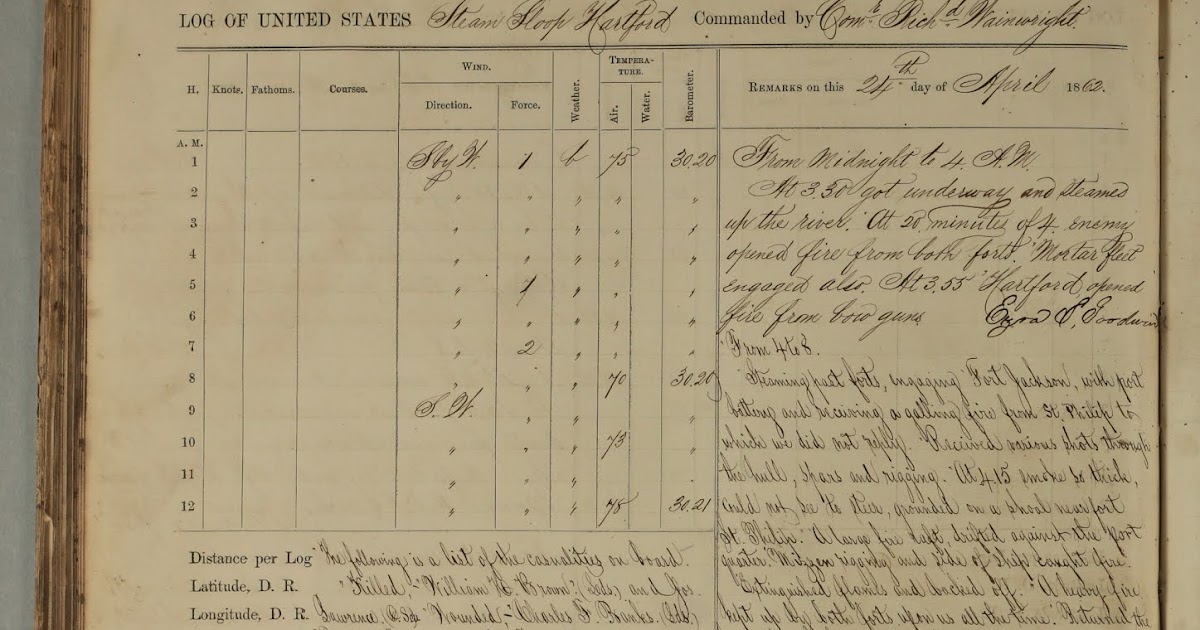 LOG OF UNITED STATES Steam Sloop Hartford Commanded by Comr Richd Wainwright.
H. Knots. Fathoms. Courses. WIND. Direction. Force. Weather. TEMPERATURE. Air. Water. Barometer.
REMARKS on this 24th day of April 1862.
A. M.
1 S by W. 1 b 75 30.20
2 " " " " "
3 " " " " "
4 " " " " "
5 " 1 " " "
6 " " " " "
7 " 2 " " "
8 " " " 70 30.20
9 S. W. " " " "
10 " " " 73 "
11 " " " " "
12 " " " 78 30.21
From Midnight to 4 A.M.
At 3.30 got underway and steamed
up the river. At 20 minutes of 4. enemy
opened fire from both forts. Mortar fleet
engaged also. At 3.55 Hartford opened
fire from bow guns. Ezra S. Goodwin
From 4 to 8.
Steaming past forts, engaging Fort Jackson, with port
battery and receiving a galling fire from St. Philip to
which we did not reply. Received various shots through
the hull, spars and rigging. At 4.15 smoke so thick,
could not see to steer, grounded on a shoal near fort
St. Philip. A large fire raft, drifted against the port
quarter. Mizzen rigging and side of ship caught fire.
Extinguished flames and backed off. A heavy fire
kept up by both forts upon us all the time. Returned the
Distance per Log The following is a list of the casualities on board.
Latitude, D. R. "Killed,- William H. Brown, and Jos.
Longitude, D. R. Lawrence, Wounded,- Charles J. Banks,